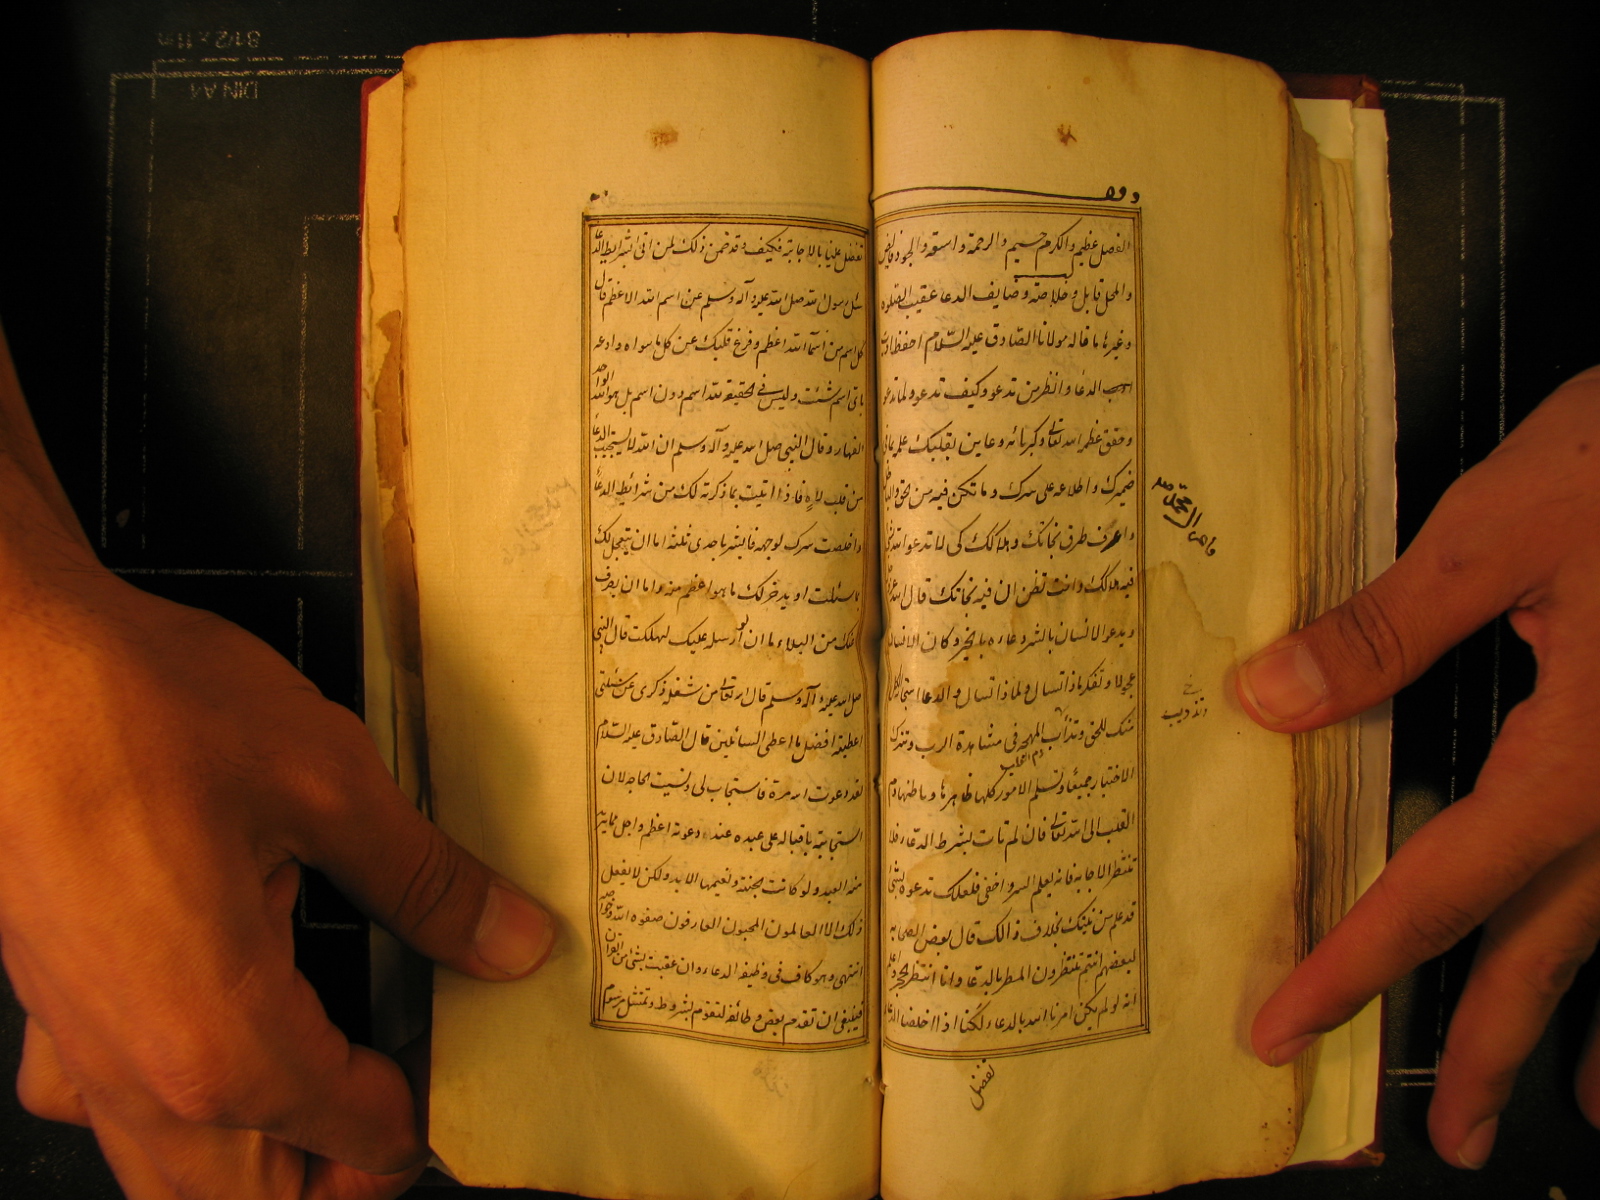 الفضل عظيم والكرم جسيم والرحمة واسعة والجود فايض
والمحل قابل وخلاصته وضايف الدعا عقيب الصلوة
وغيرها ما قاله مولانا الصادق عليه السلام احفظ اداب
الدعا وانظر من تدعو وكيف تدعو ولما تدعو
وحقق عظمة الله تعالى وكبريائه وعاين بقلبك علمه بما في
ضميرك واطلاعه على سرك وما تكن فيه من الحق والباطل
واعرف طرق نجاتك وهلاكك كى لا تدعو الله بشئ
فيه هلاكك وانت تظن ان فيه نجاتك قال الله عز وجل
ويدعو الانسان بالشر دعاءه بالخير وكان الانسان
عجولا وتفكر ماذا تسال ولماذا تسال والدعا استجابة الكل
منك للحق وتذاب المهجة فى مشاهدة الرب وترك
الاختيار جميعا وتسليم الامور كلها ظاهرها وباطنها
الى الله تعالى فان لم تات بشرط الدعاء فلا
تنتظر الاجابة فانه يعلم السر واخفى فلعلك تدعوه بشئ
قد علم من نيتك بخلاف ذالك قال بعض الصحابه
لبعضهم انتم تنتظرون المطر بالدعا وانا انتظر الحجر واعلم
انه لو لم يكن امرنا الله بالدعاء لكنا اذا اخلصنا الدعا
تفضل
تفضل علينا بالاجابة فكيف وقد ضمن ذلك لمن اتى بشرايط الدعا
سئل رسول الله صلى الله عليه وآله وسلم عن اسم الله الاعظم قال
كل اسم من اسماء الله اعظم وفرغ قلبك عن كل ما سواه وادعه
باى اسم شئت وليس فى الحقيقة لله اسم دون اسم بل هو الله الواحد
القهار وقال النبى صلى الله عليه وآله وسلم ان الله لا يستجيب الدعا
من قلب لاه فاذا اتيت بما ذكرته لك من شرائط الدعا
واخلصت سرك لوجهه فابشر باحدى ثلثة اما ان يتعجل لك
بما سئلت او يدخر لك ما هو اعظم منه واما ان يصرف
عنك من البلاء ما ان لو ارسله عليك لهلكت قال النبى
صلى الله عليه وآله وسلم قال الله تعالى من شغله ذكرى عن مسئلتى
اعطيته افضل ما اعطى السائلين قال الصادق عليه السلام
لقد دعوت الله مرة فاستجاب لى ونسيت الحاجة لان
استجابته باقباله على عبده عند دعوته اعظم واجل مما يريد
منه العبد ولو كانت الجنة ونعيمها الابد ولكن لا يفعل
ذلك الا العالمون المحبون العارفون صفوة الله وخواصه
انتهى وهو كاف فى وظيفه الدعاء وان عقبت بشئ من القران
فينبغى ان تقدم بعض وظائفه لتقوم بشروطه وتمتثل مرسوم